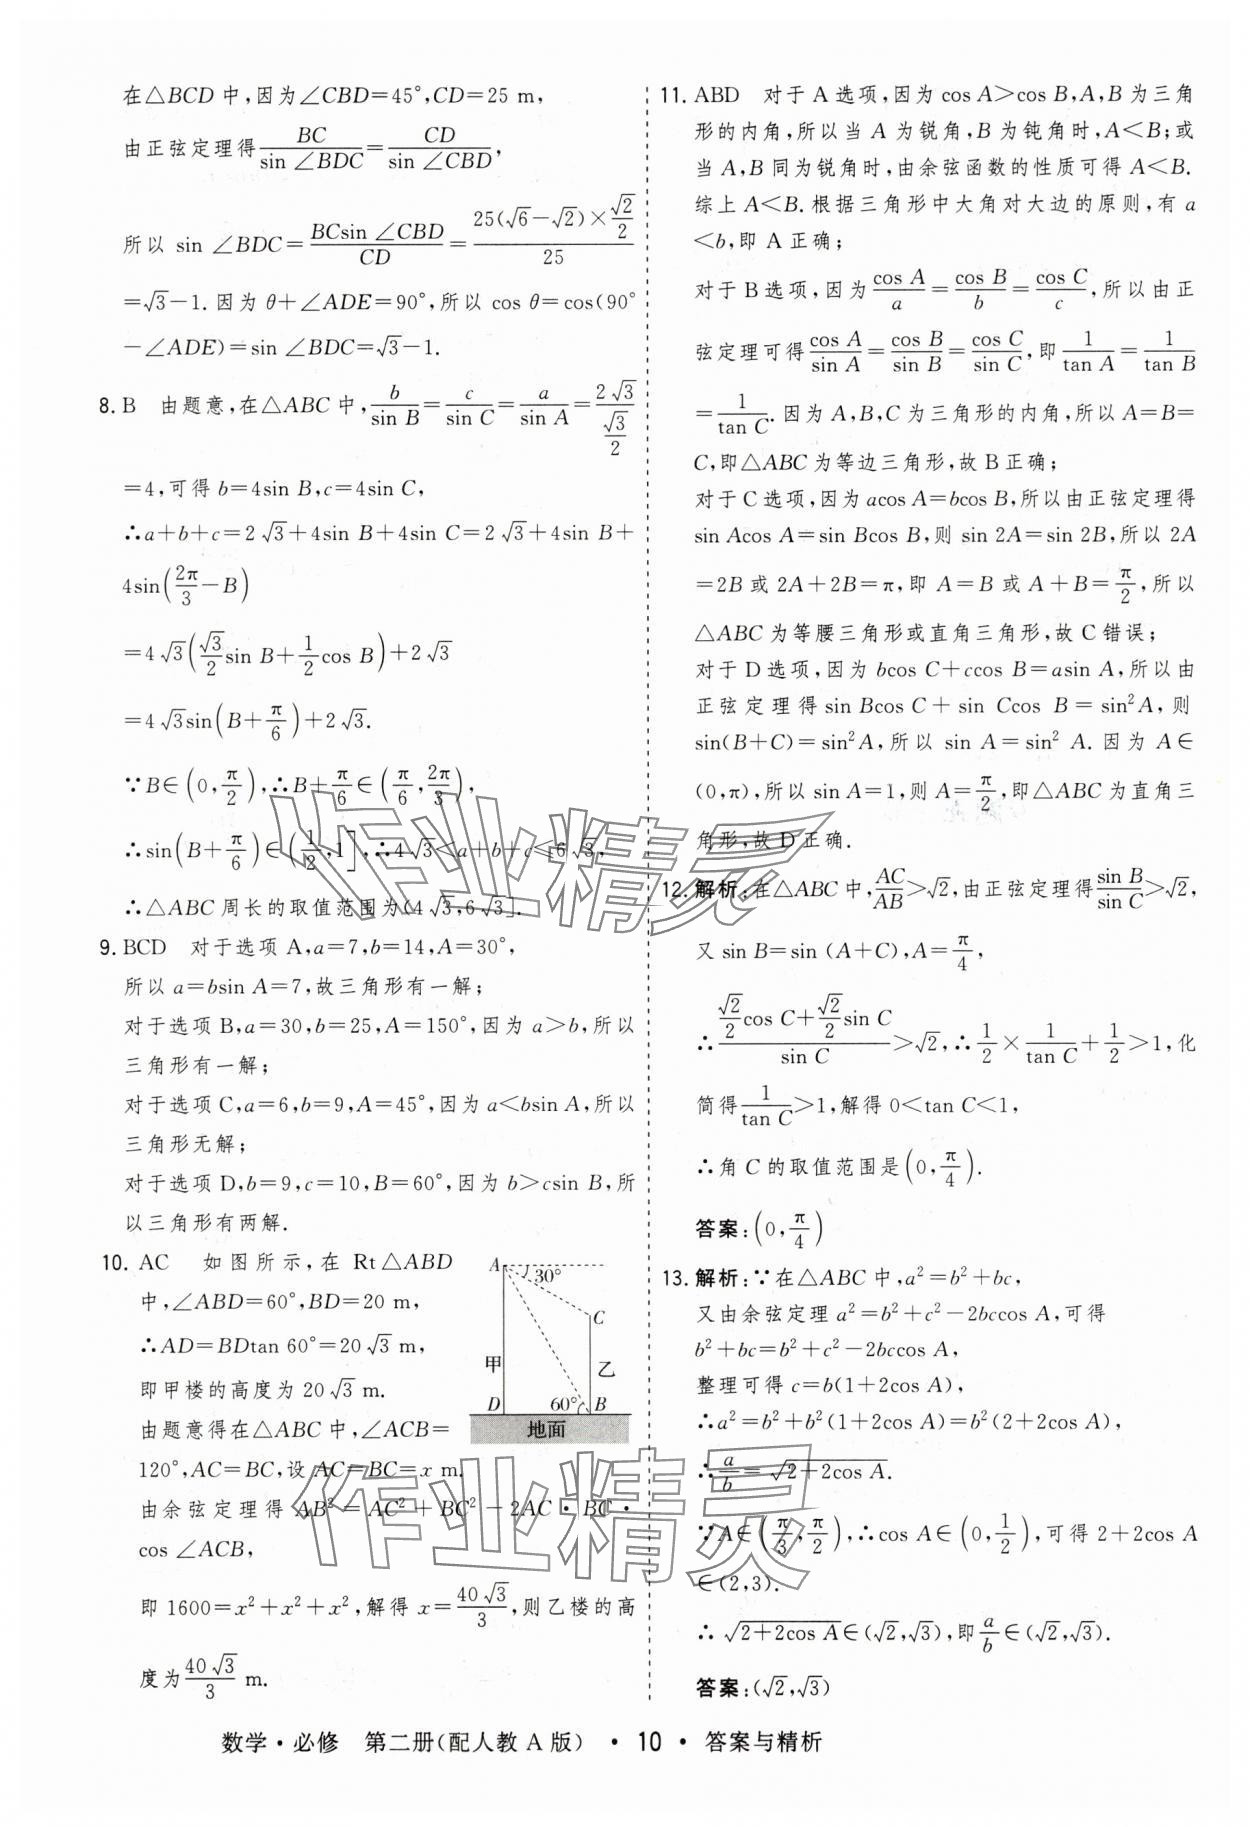 在△BCD中,因为∠CBD=45°,CD=25 m,
由正弦定理得BC/sin ∠BDC=CD/sin ∠CBD,
所以 sin ∠BDC=BCsin ∠CBD/CD=25(√6-√2)×√2/2/25
=√3-1.因为 θ+∠ADE=90°,所以 cos θ=cos(90°
-∠ADE)=sin ∠BDC=√3-1.
8. B 由题意,在△ABC中,b/sin B=c/sin C=a/sin A=2√3/(√3/2)
=4,可得 b=4sin B,c=4sin C,
∴a+b+c=2√3+4sin B+4sin C=2√3+4sin B+
4sin(2π/3-B)
=4√3(√3/2 sin B+1/2 cos B)+2√3
=4√3sin(B+π/6)+2√3.
∵B∈(0,π/2),∴B+π/6∈(π/6,2π/3),
∴sin(B+π/6)∈(1/2,1],∴4√3<a+b+c≤6√3,
∴△ABC 周长的取值范围为(4√3,6√3].
9. BCD 对于选项 A,a=7,b=14,A=30°,
所以 a=bsin A=7,故三角形有一解;
对于选项 B,a=30,b=25,A=150°,因为 a>b,所以
三角形有一解;
对于选项 C,a=6,b=9,A=45°,因为 a<bsin A,所以
三角形无解;
对于选项 D,b=9,c=10,B=60°,因为 b>csin B,所
以三角形有两解.
10. AC 如图所示,在 Rt△ABD
中,∠ABD=60°,BD=20 m,
∴AD=BDtan 60°=20√3 m,
即甲楼的高度为 20√3 m.
由题意得在△ABC中,∠ACB=
120°,AC=BC,设 AC=BC=x m.
由余弦定理得 AB²=AC²+BC²-2AC·BC·
cos ∠ACB,
即 1600=x²+x²+x²,解得 x=40√3/3,则乙楼的高
度为40√3/3 m.
A
30°
C
甲
乙
D
60°
B
地面
11. ABD 对于 A 选项,因为 cos A>cos B,A,B 为三角
形的内角,所以当 A 为锐角,B 为钝角时,A<B;或
当 A,B 同为锐角时,由余弦函数的性质可得 A<B.
综上 A<B.根据三角形中大角对大边的原则,有 a
<b,即 A 正确;
对于 B 选项,因为cos A/a=cos B/b=cos C/c,所以由正
弦定理可得cos A/sin A=cos B/sin B=cos C/sin C,即1/tan A=1/tan B
=1/tan C.因为 A,B,C 为三角形的内角,所以 A=B=
C,即△ABC 为等边三角形,故 B 正确;
对于 C 选项,因为 acos A=bcos B,所以由正弦定理得
sin Acos A=sin Bcos B,则 sin 2A=sin 2B,所以 2A
=2B 或 2A+2B=π,即 A=B 或 A+B=π/2,所以
△ABC 为等腰三角形或直角三角形,故 C 错误;
对于 D 选项,因为 bcos C+ccos B=asin A,所以由
正弦定理得 sin Bcos C+sin Ccos B=sin²A,则
sin(B+C)=sin²A,所以 sin A=sin² A.因为 A∈
(0,π),所以 sin A=1,则 A=π/2,即△ABC 为直角三
角形,故 D 正确.
12. 解析:在△ABC中,AC/AB>√2,由正弦定理得sin B/sin C>√2,
又 sin B=sin (A+C),A=π/4,
∴(√2/2 cos C+√2/2 sin C)/sin C>√2,∴1/2×1/tan C+1/2>1,化
简得1/tan C>1,解得 0<tan C<1,
∴角 C 的取值范围是(0,π/4).
答案:(0,π/4)
13. 解析:∵在△ABC中,a²=b²+bc,
又由余弦定理 a²=b²+c²-2bccos A,可得
b²+bc=b²+c²-2bccos A,
整理可得 c=b(1+2cos A),
∴a²=b²+b²(1+2cos A)=b²(2+2cos A),
∴a/b=√(2+2cos A).
∵A∈(π/3,π/2),∴cos A∈(0,1/2),可得 2+2cos A
∈(2,3).
∴√(2+2cos A)∈(√2,√3),即a/b∈(√2,√3).
答案:(√2,√3)
作业精灵
作业精灵
数学·必修 第二册(配人教 A 版) · 10 · 答案与精析